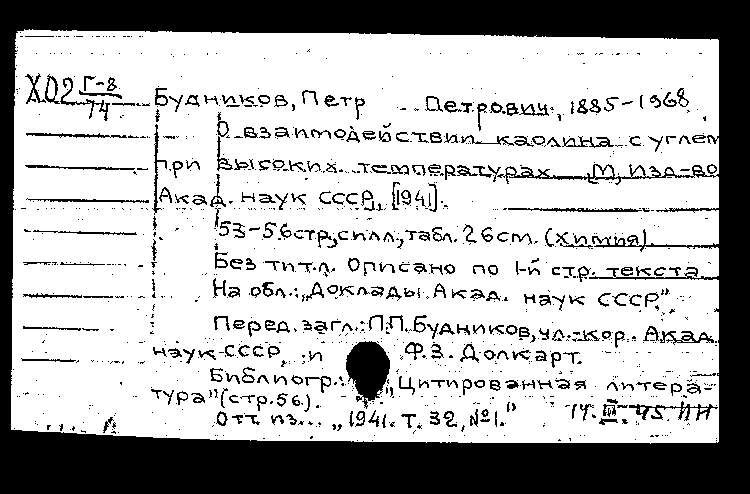 Х02 Г-8
74
Будников, Петр Петрович, 1885-1968
О взаимодействии каолина с углем
при высоких температурах. М, Изд-во
Акад. наук СССР, [1941].
53-56 стр, с илл, табл. 26 cm. (Химия).
Без тит.л. Описано по 1-й стр. текста
На обл.: „Доклады Акад. наук СССР."
Перед. загл.: П.П. Будников, чл.-кор. Акад.
наук СССР, и Ф.З. Долкарт.
Библиогр.: „Цитированная литера-
тура" (стр. 56).
Отт. из... „1941. Т. 32, №1."
14.III.45 ИН